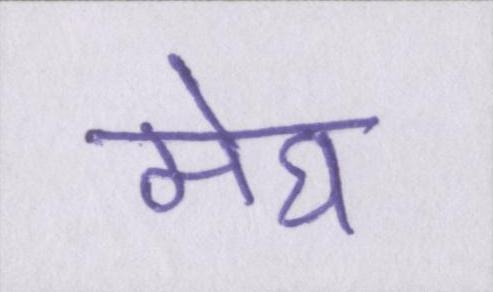 मेघ